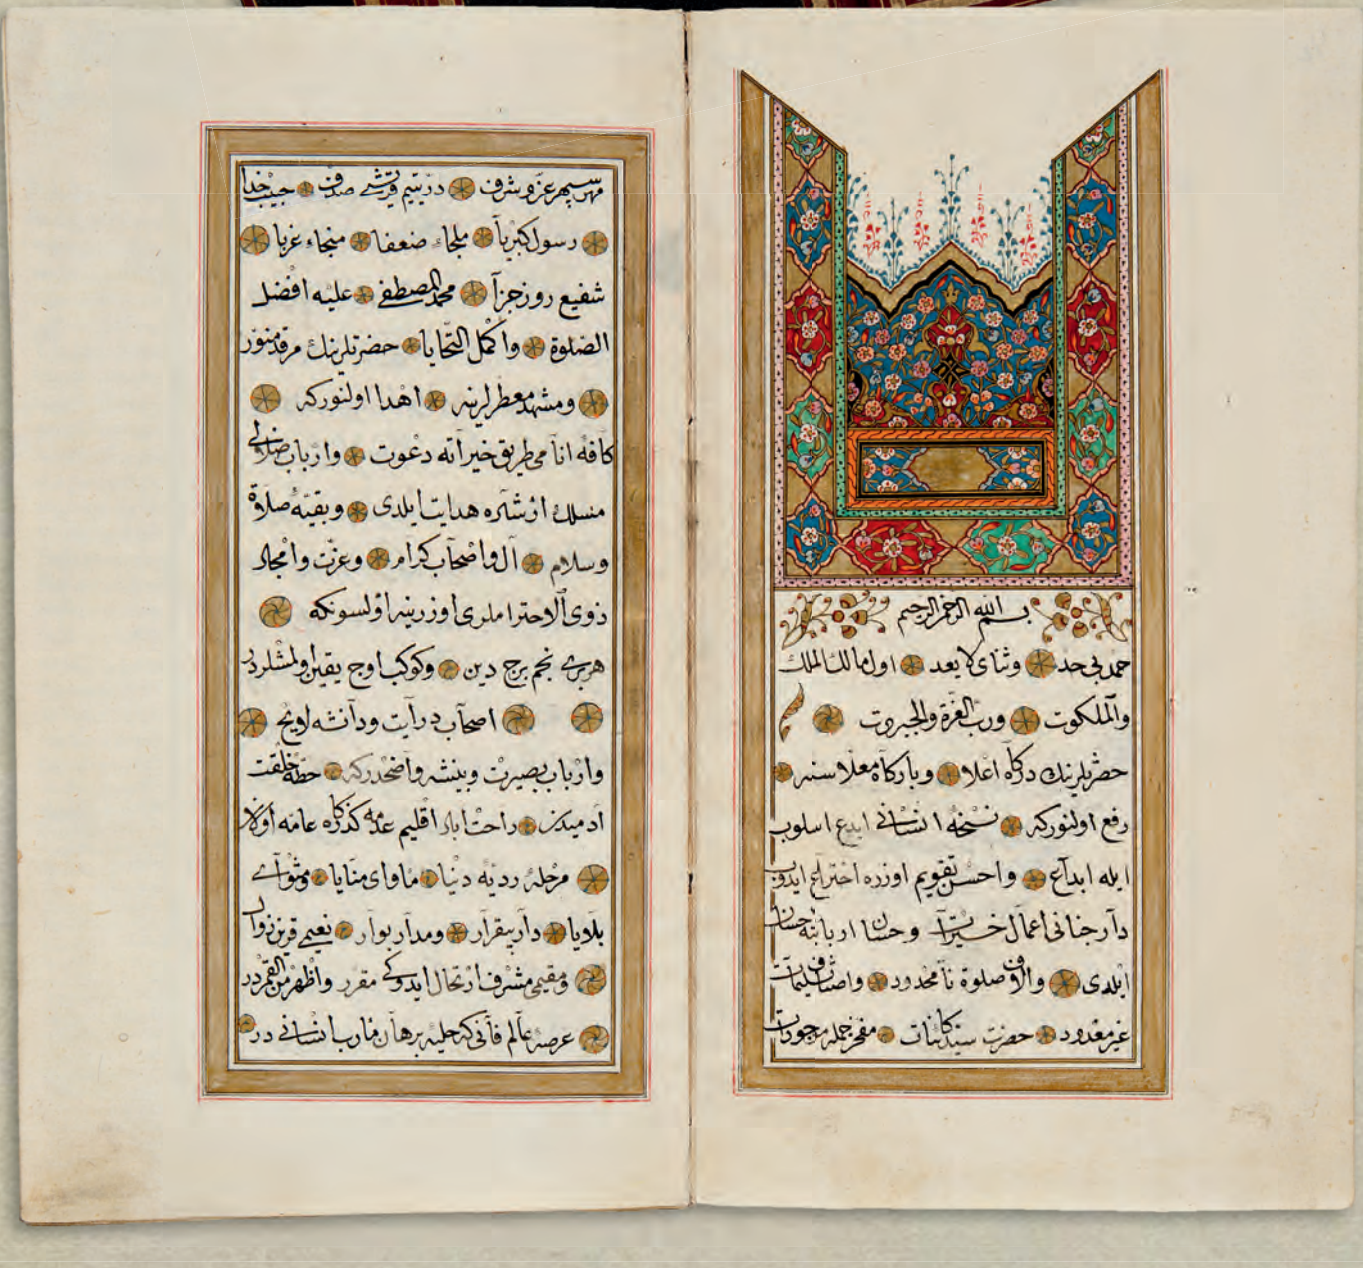 بسم الله الرحمن الرحيم
حمد بی حد و ثنای لا یعد اول مالك الملك
والملكوت و رب العزة والجبروت
حضرتلرینك درگاه اعلا و بارگاه معلا سنه
رفع اولنوركه نسخهٔ انسانی ابدع اسلوب
ایله ابداع و احسن تقویم اوزره اختراع ایدوب
دار جنانی اعمال خیرات و حسان اربابنه احسان
ایلدی و الاف صلوة نا محدود و اصناف تسلیمات
غیر معدود حضرت سید كائنات مفخر جمله موجودات
مهر سپهر عز و شرف در یتیم قرشی صدف حبیب خدا
رسول كبریا ملجاء ضعفا منجاء غربا
شفیع روز جزا محمد المصطفی علیه افضل
الصلوة و اكمل التحایا حضرتلرینك مرقد منور
و مشهد معطرلرینه اهدا اولنوركه
كافهٔ انامی طریق خیراته دعوت و ارباب ضلالی
مسلك ارشاده هدایت ایلدی و بقیهٔ صلاة
و سلام آل و اصحاب كرام و عزت و امجاد
ذوی الاحتراملری اوزرینه اولسونكه
هر بری نجم برج دین و كوكب اوج یقین اولمشلردر
اصحاب درایت و دانشه لایح
و ارباب بصیرت و بینشه واضحدركه خطهٔ خلقت
آدمیدن راحت آباد اقلیم عدمه گذرگاه عامه اولان
مرحلهٔ ردیهٔ دنیا مأوای منایا و مثوای
بلایا دار بیقرار و مدار بوار نعیمی قرین زوال
و مقیمی مشرف ارتحال ایدوكی مقرر و اظهر من القمردر
عرصهٔ عالم فانی كه حلیهٔ برهان مارب انسانی در